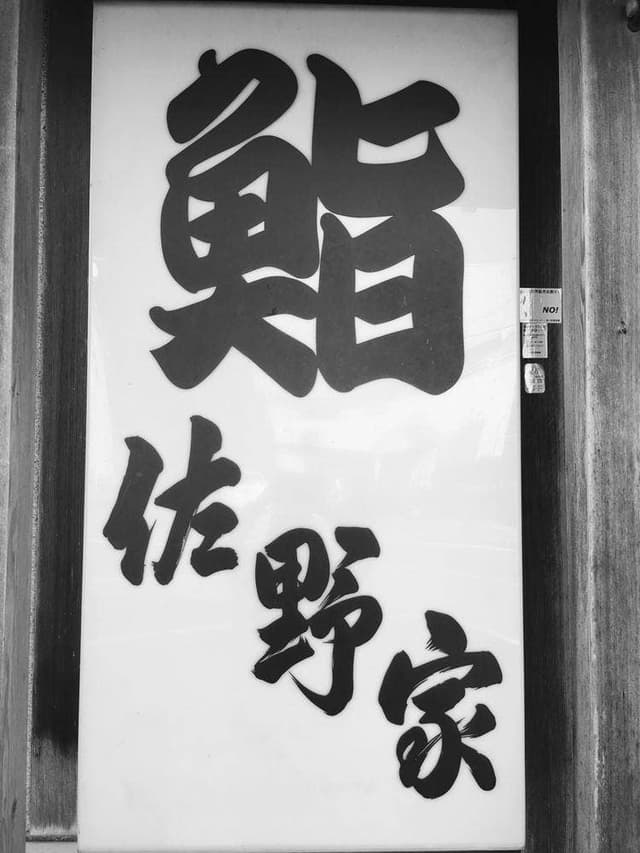 鮨
佐野家
NO!